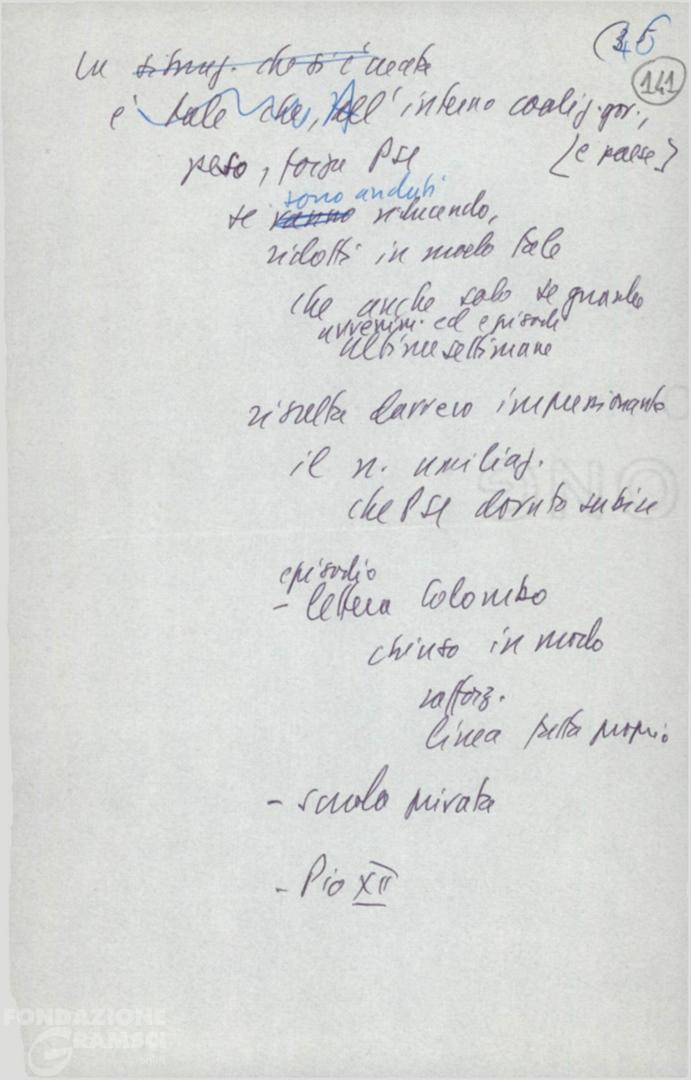 45
141
La situaz. che si è creata
è tale che, all'interno coaliz. gov.,
peso, forza PSI [e paese]
sono andati
se vanno riducendo,
ridotti in modo tale
che anche solo se guardo
avvenim. ed episodi
ultime settimane
risulta davvero impressionante
il n. umiliaz.
che PSI dovuto subire
episodio
- lettera Colombo
chiuso in modo
rafforz.
linea fatta propria
- scuola privata
- Pio XII
FONDAZIONE
GRAMSCI